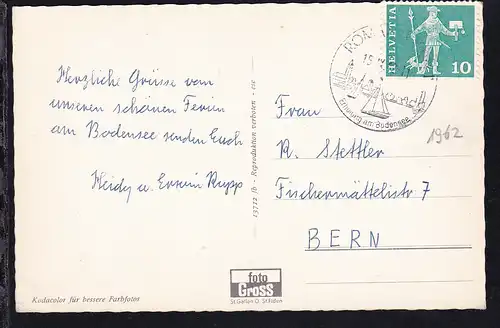 Herzliche Grüsse von
unseren schönen Ferien
am Bodensee senden Euch
Heidy u. Erwin Rupp
Kodacolor für bessere Farbfotos
13712 fb - Reproduktion verboten -
foto
Gross
St. Gallen O. St. Fiden
HELVETIA
10
ROMA
Erholung am Bodensee
1962
Frau
R. Stettler
Fischermättelistr. 7
BERN